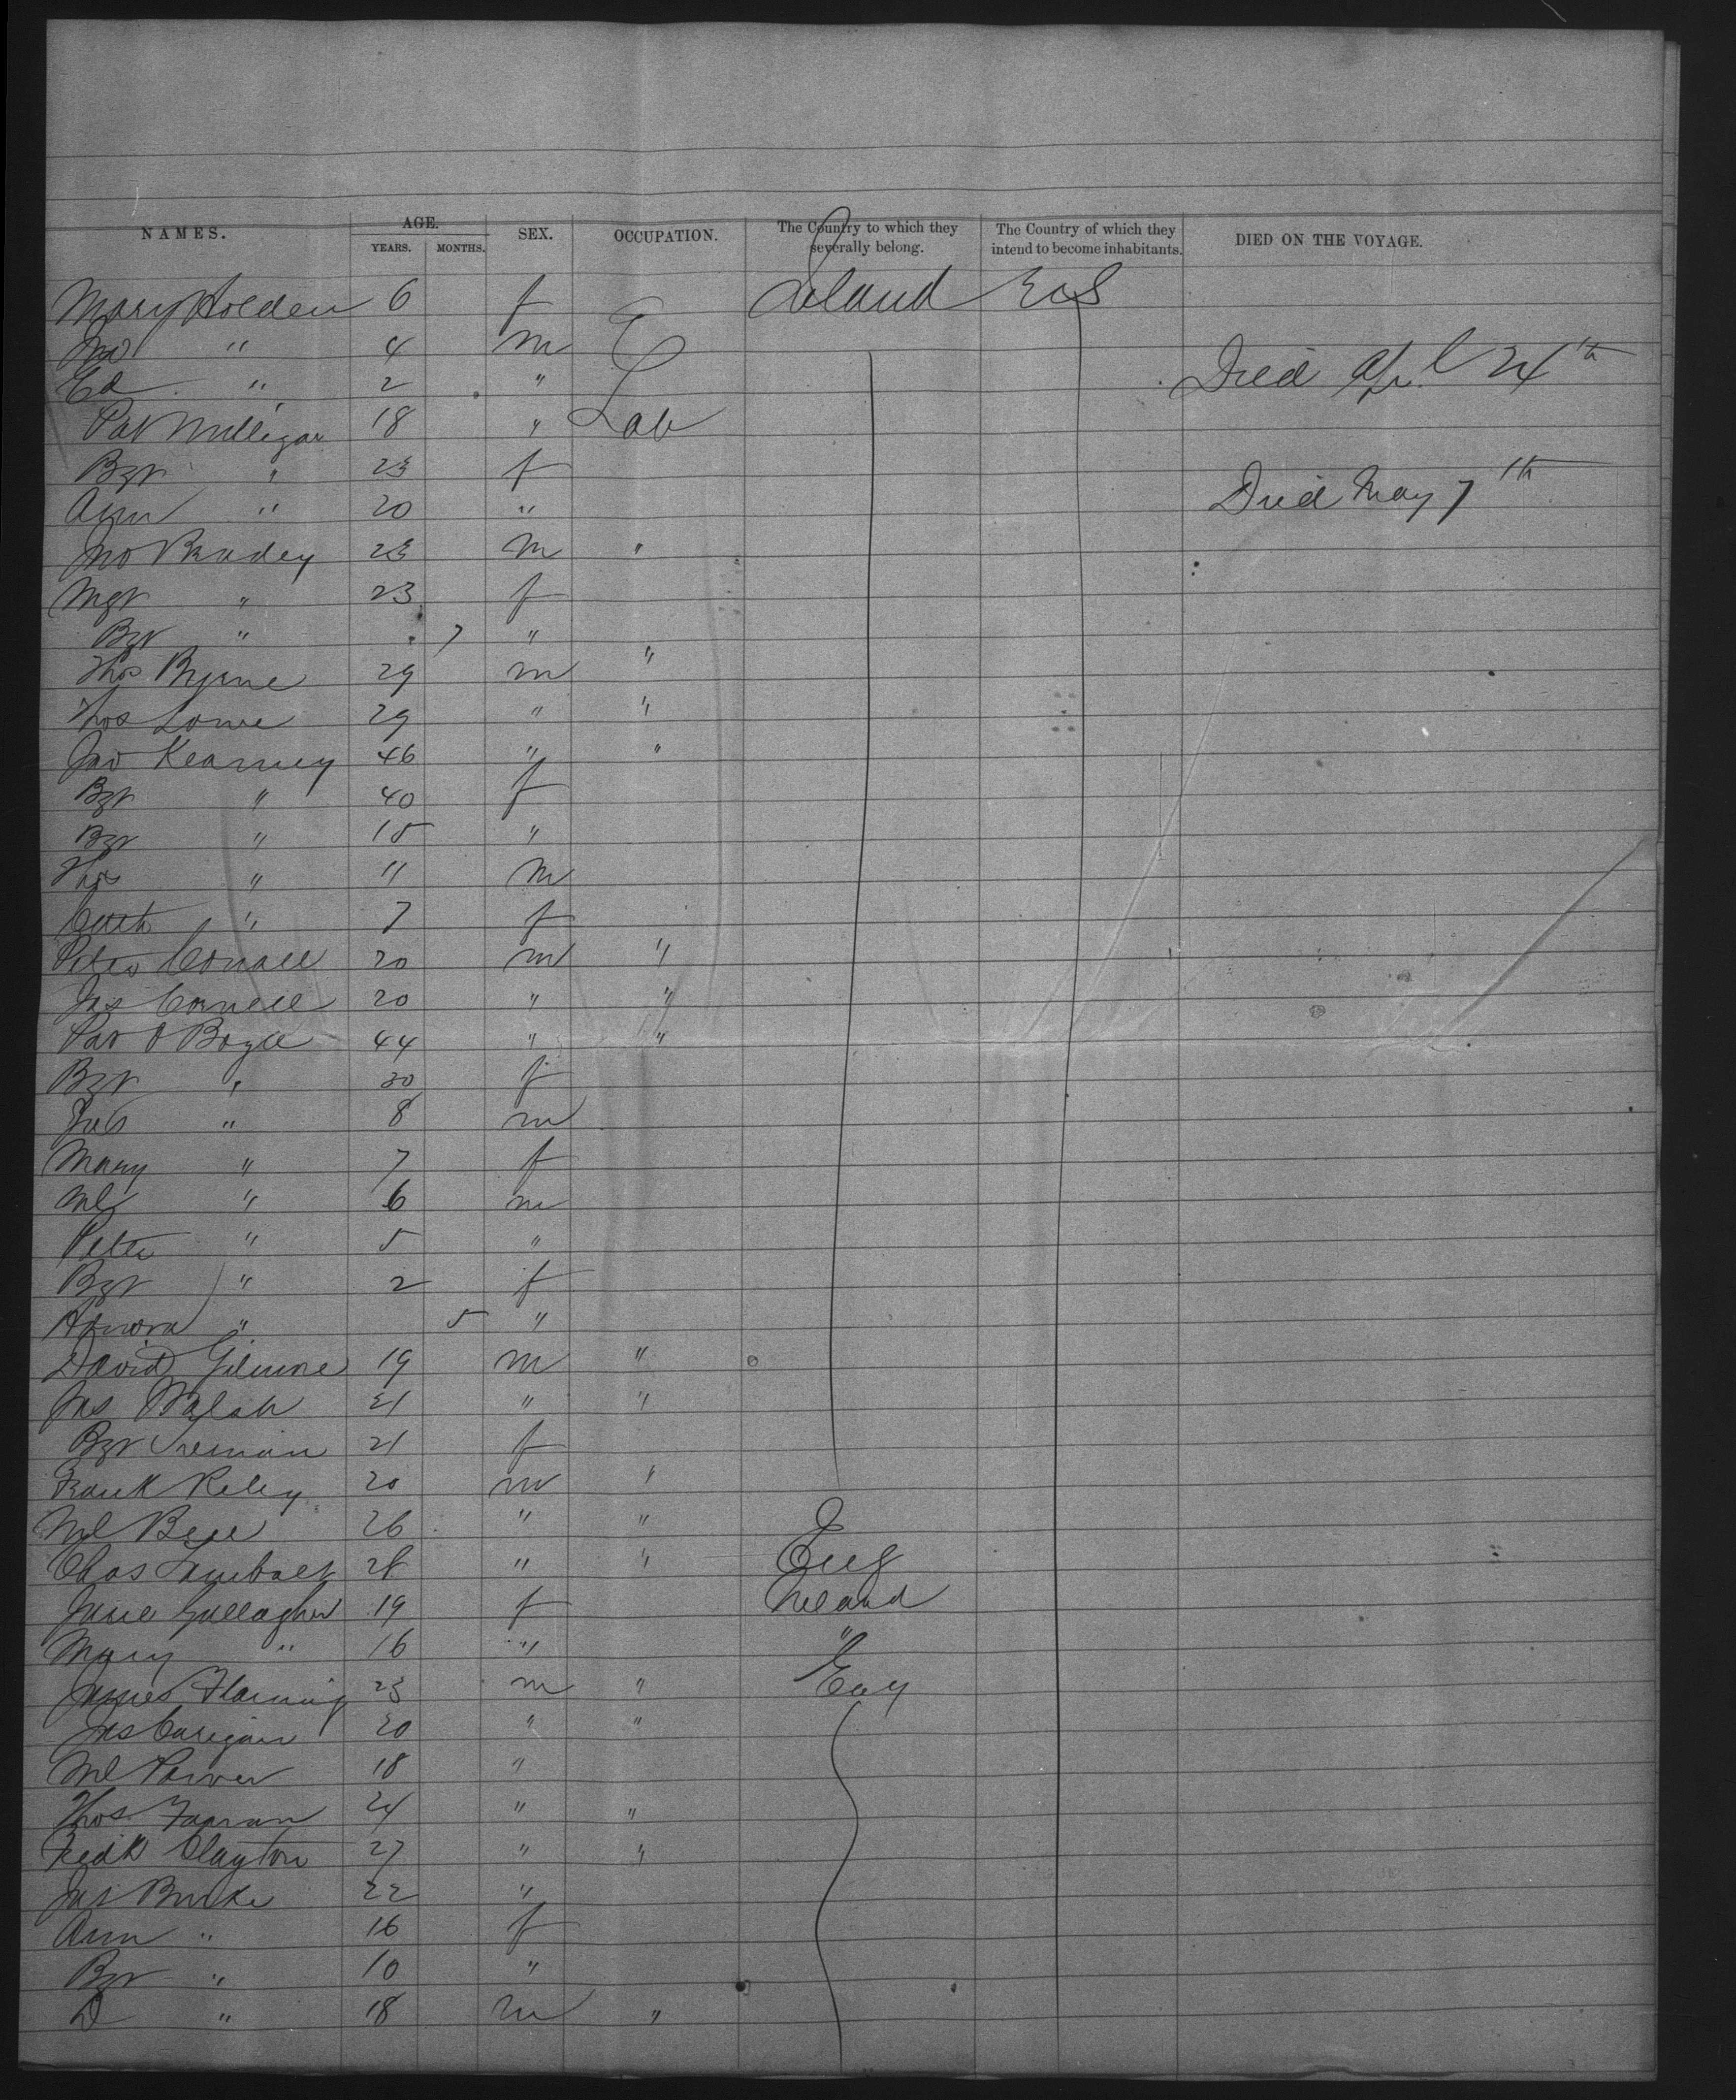 NAMES. AGE. YEARS. MONTHS. SEX. OCCUPATION. The Country to which they severally belong. The Country of which they intend to become inhabitants. DIED ON THE VOYAGE.
Mary Holden 6 f Ireland U S
Jno " 4 m
Ed " 2 " Died Apl 24th
Pat Milligan 18 " Lab
Bgt " 23 f
Ann " 20 " Died May 7th
Jno Bradey 23 m "
Mgt " 23 f
Bgt " 7 "
Thos Byrne 29 m "
Thos Lowe 29 " "
Jno Kearney 46 " "
Bgt " 40 f
Bgt " 15 "
Thos " 11 m
Cath " 7 f
Peter Conall 20 m "
Jas Connell 20 " "
Pat O Boyle 44 " "
Bgt " 30 f
" 8 m
Mary " 7 f
Ml " 6 m
Peter " 5 "
Bgt " 2 f
Honora " 5 "
David 19 m "
Jas Walsh 21 " "
Bgt 21 f
Frank Reley 20 m "
Ml 26 " "
Chas 28 " " Eng
Jane Gallagher 19 f Ireland
Mary " 16 " "
James Flaming 23 m " Eng
Jas Carigan 20 " "
Ml Power 18 "
Thos 24 " "
Fredk Clayton 27 " "
Jas Burke 22 "
Ann " 16 f
Bgt " 10 "
D " 18 m "